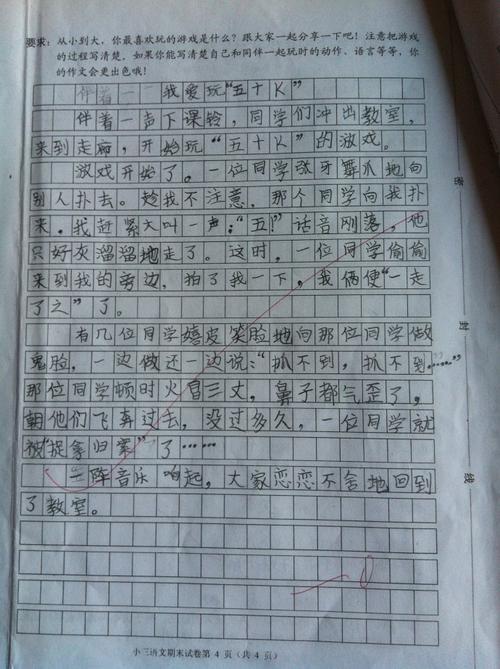 要求：从小到大，你最喜欢玩的游戏是什么？跟大家一起分享一下吧！注意把游戏
的过程写清楚，如果你能写清楚自己和同伴一起玩时的动作、语言等等，你
的作文会更出色哦！
伴着一 我爱玩“五十K”
伴着一声下课铃，同学们冲出教室，
来到走廊，开始玩“五十K”的游戏。
游戏开始了。一位同学张牙舞爪地向
别人扑去。趁我不注意，那个同学向我扑
来。我赶紧大叫一声：“五！”话音刚落，他
只好灰溜溜地走了。这时，一位同学偷偷
来到我的旁边，拍了我一下，我俩便“一走
了之”了。
有几位同学嬉皮笑脸地向那位同学做
鬼脸，一边做还一边说：“抓不到，抓不到……”
那位同学顿时火冒三丈，鼻子都气歪了，
朝他们飞奔过去，没过多久，一位同学就
被“捉拿归案”了……
一阵音乐响起，大家恋恋不舍地回到
了教室。
密
封
线
小三语文期末试卷第 4 页（共 4 页）